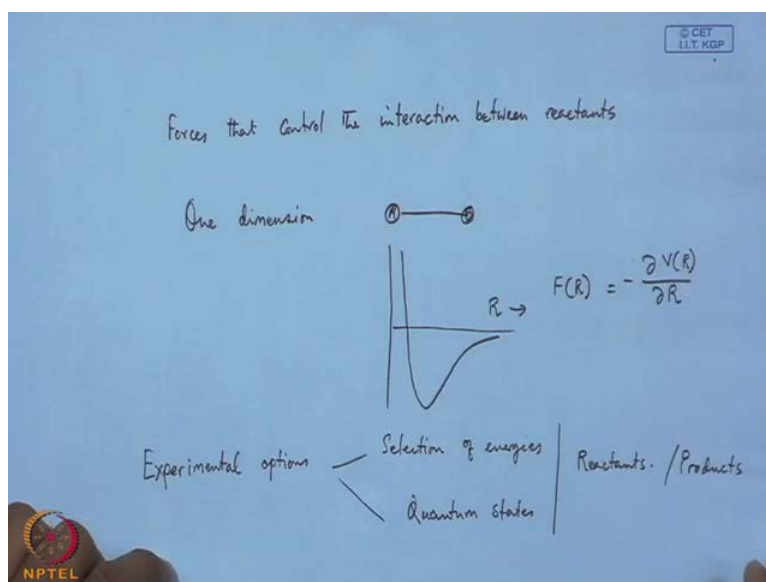 © CET
I.I.T. KGP
Forces that control the interaction between reactants
One dimension
R →
F(R) = - ∂V(R) / ∂R
Experimental options
Selection of energies
Quantum states
Reactants. / Products
NPTEL